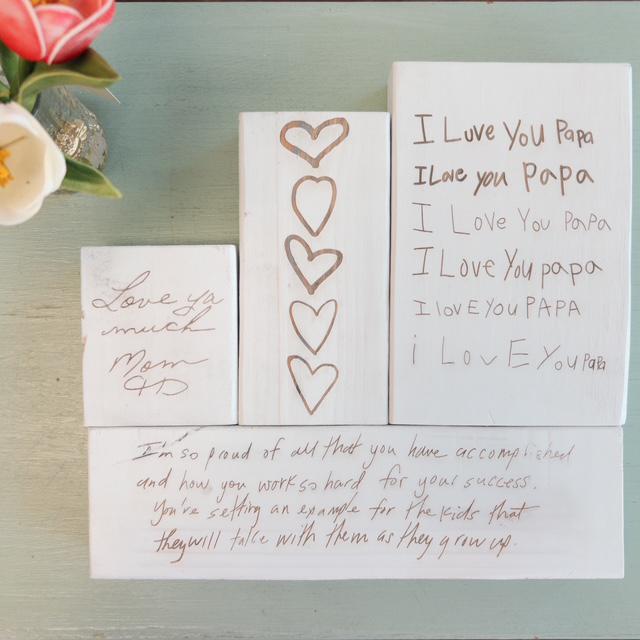 Love ya
much
Mom
I Luve You Papa
I Love you Papa
I Love You PaPa
I Love You papa
I lovE YOU PAPA
i LovE You papa
I'm so proud of all that you have accomplished
and how you work so hard for your success.
You're setting an example for the kids that
they will take with them as they grow up.